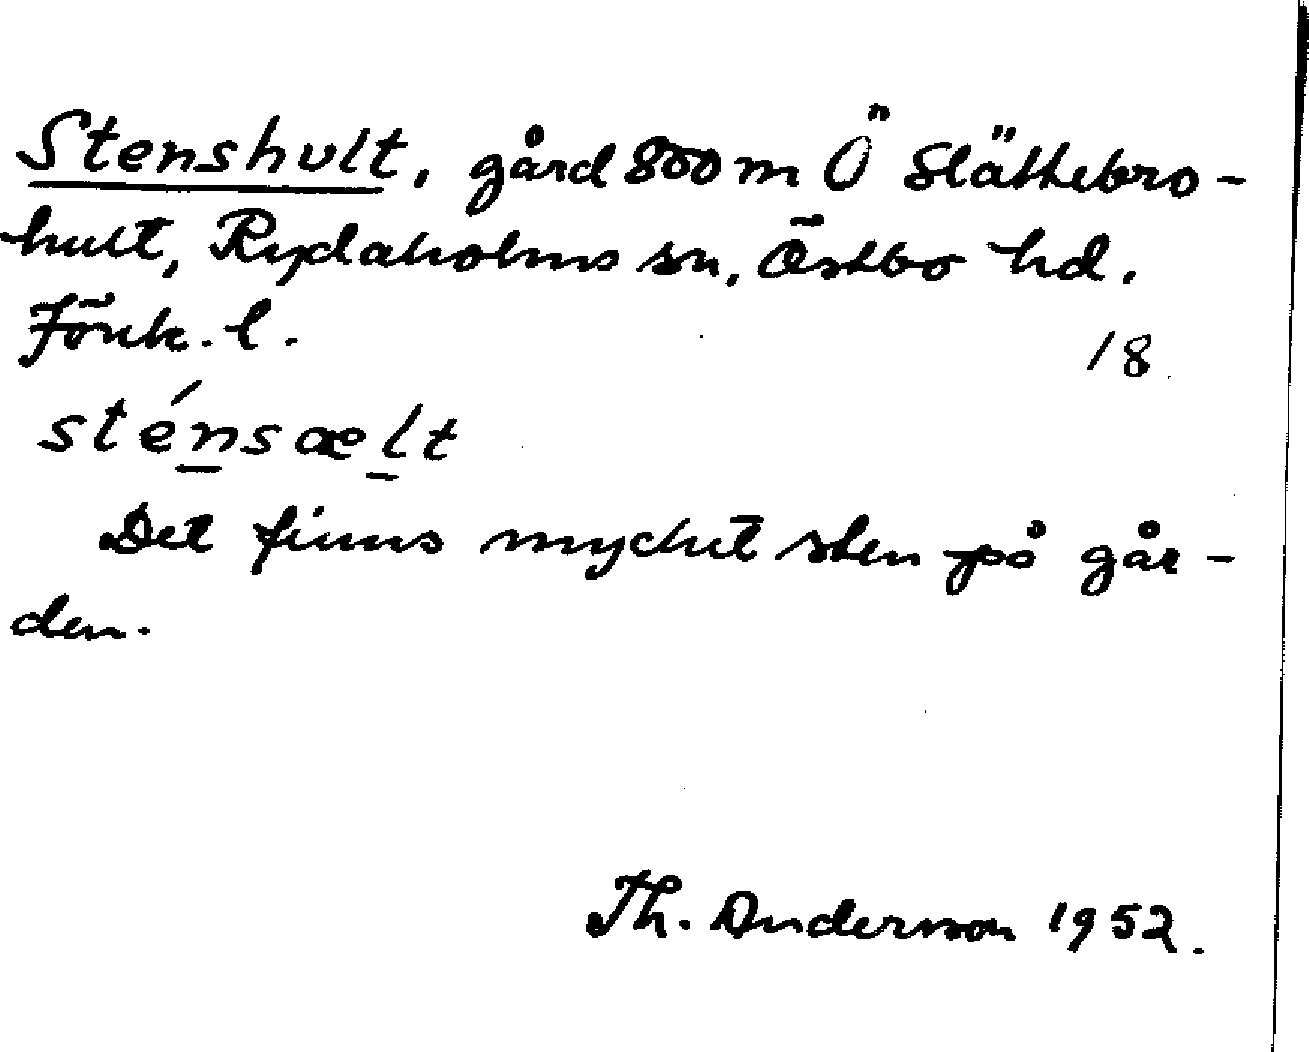 Stenshult, gård 800 m Ö Slättebro-
hult, Rydaholms sn, Östbo hd.
Jönk. l.
18
sténsælt
Det finns mycket sten på går-
den.
Th. Andersson 1952.